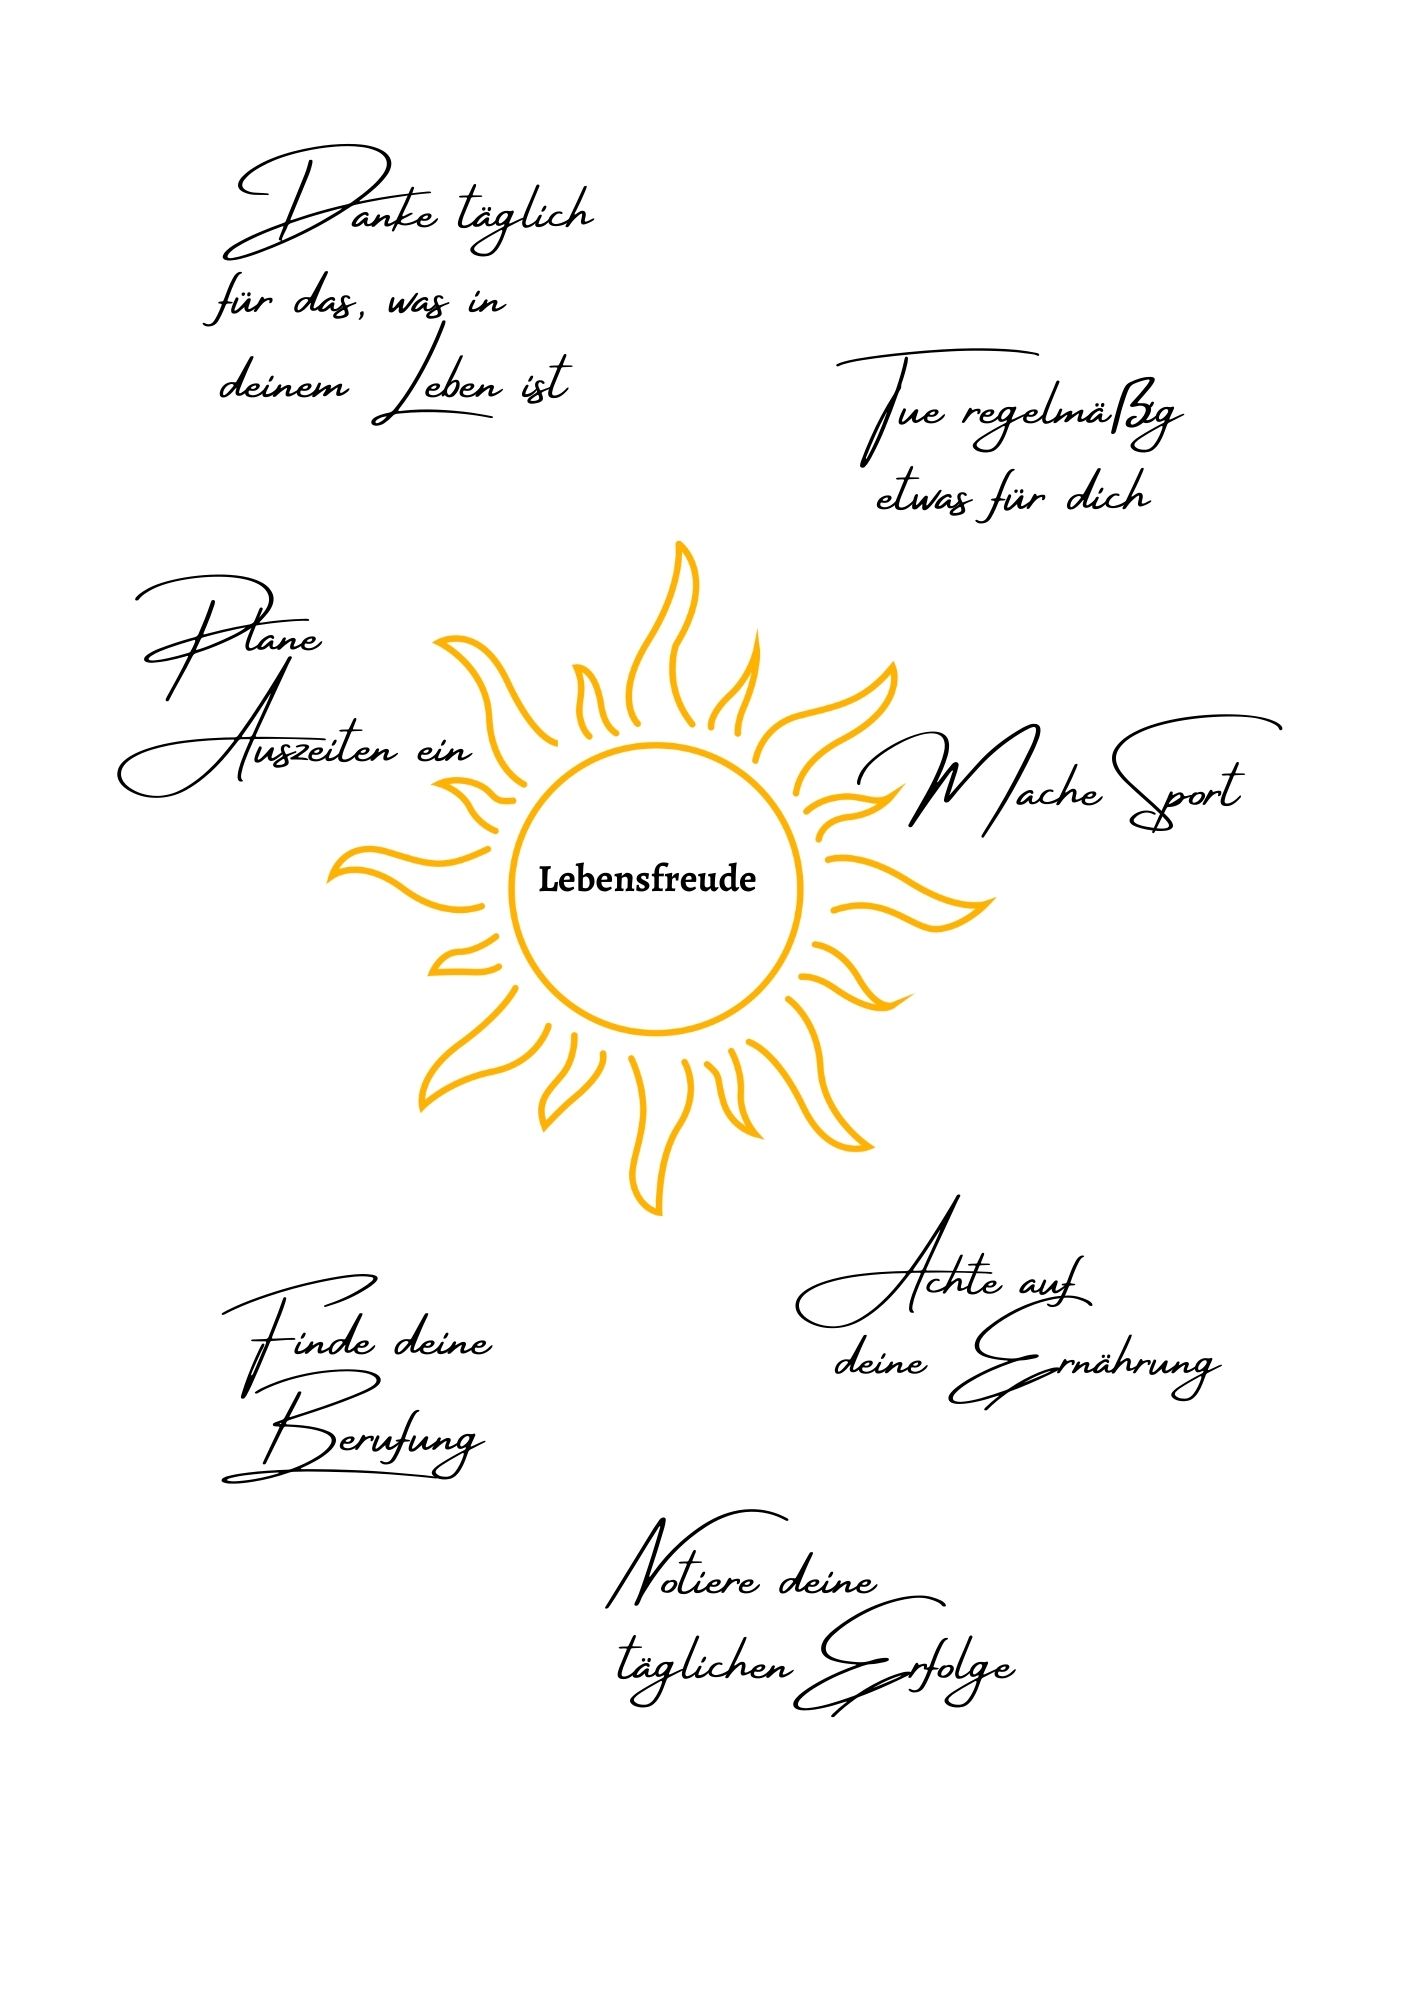 Danke täglich
für das, was in
deinem Leben ist
Tue regelmäßig
etwas für dich
Plane
Auszeiten ein
Mache Sport
Lebensfreude
Achte auf
deine Ernährung
Finde deine
Berufung
Notiere deine
täglichen Erfolge